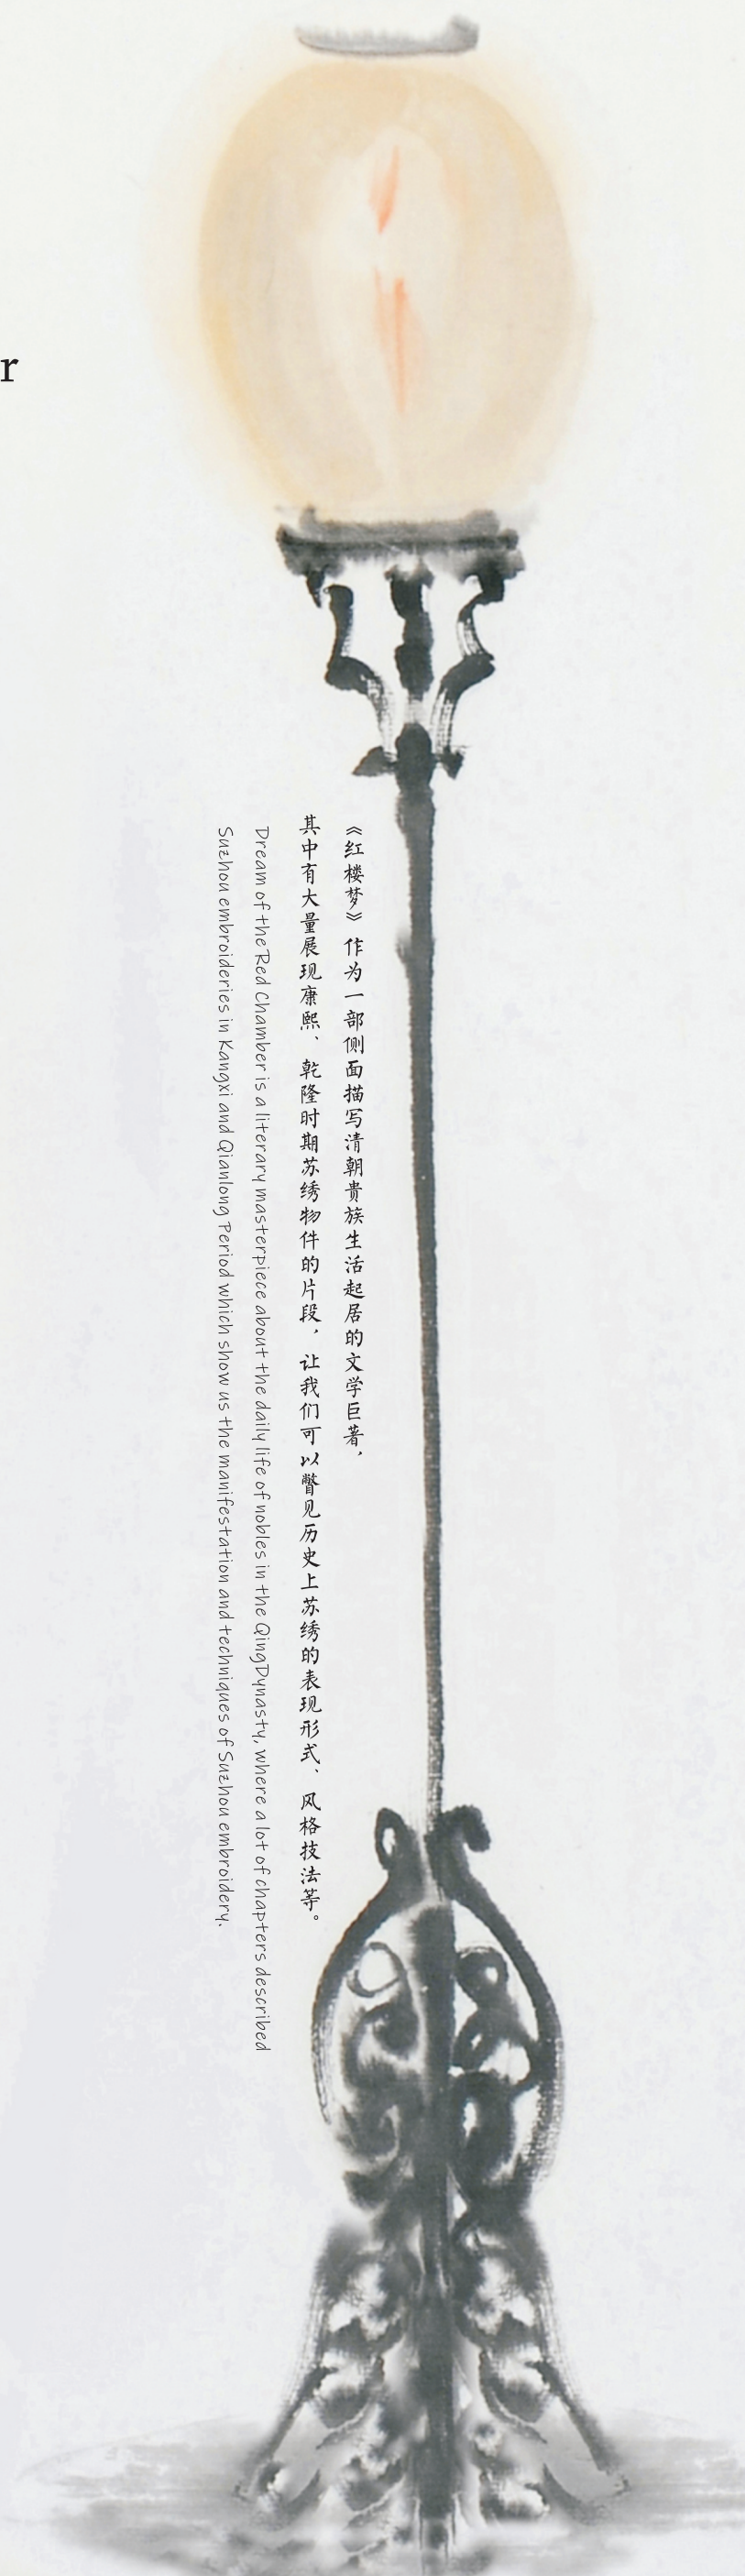 r
《红楼梦》作为一部侧面描写清朝贵族生活起居的文学巨著，
其中有大量展现康熙、乾隆时期苏绣物件的片段，让我们可以瞥见历史上苏绣的表现形式、风格技法等。
Dream of the Red Chamber is a literary masterpiece about the daily life of nobles in the QingDynasty, where a lot of chapters described
Suzhou embroideries in Kangxi and Qianlong Period which show us the manifestation and techniques of Suzhou embroidery.